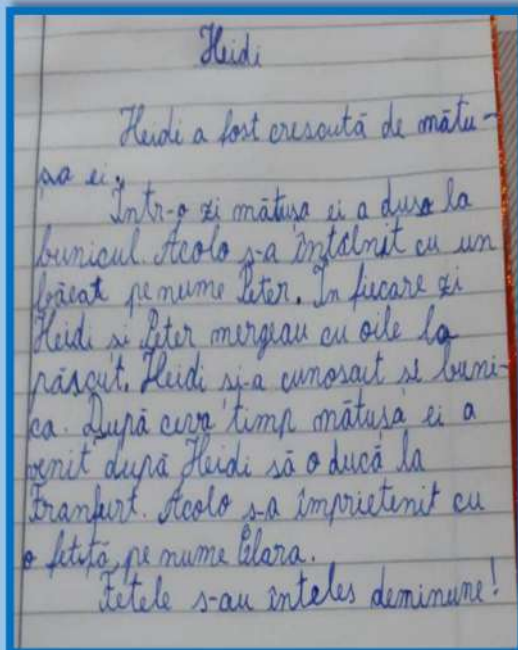 Heidi
Heidi a fost crescută de mătu-
șa ei.
Într-o zi mătușa ei a duso la
bunicul. Acolo s-a întâlnit cu un
băeat pe nume Peter. În fiecare zi
Heidi si Peter mergeau cu oile la
păscut. Heidi si-a cunoscut si buni-
ca. După ceva timp mătușa ei a
venit după Heidi să o ducă la
Franfurt. Acolo s-a împrietenit cu
o fetiță pe nume Clara.
Fetele s-au înteles deminune!